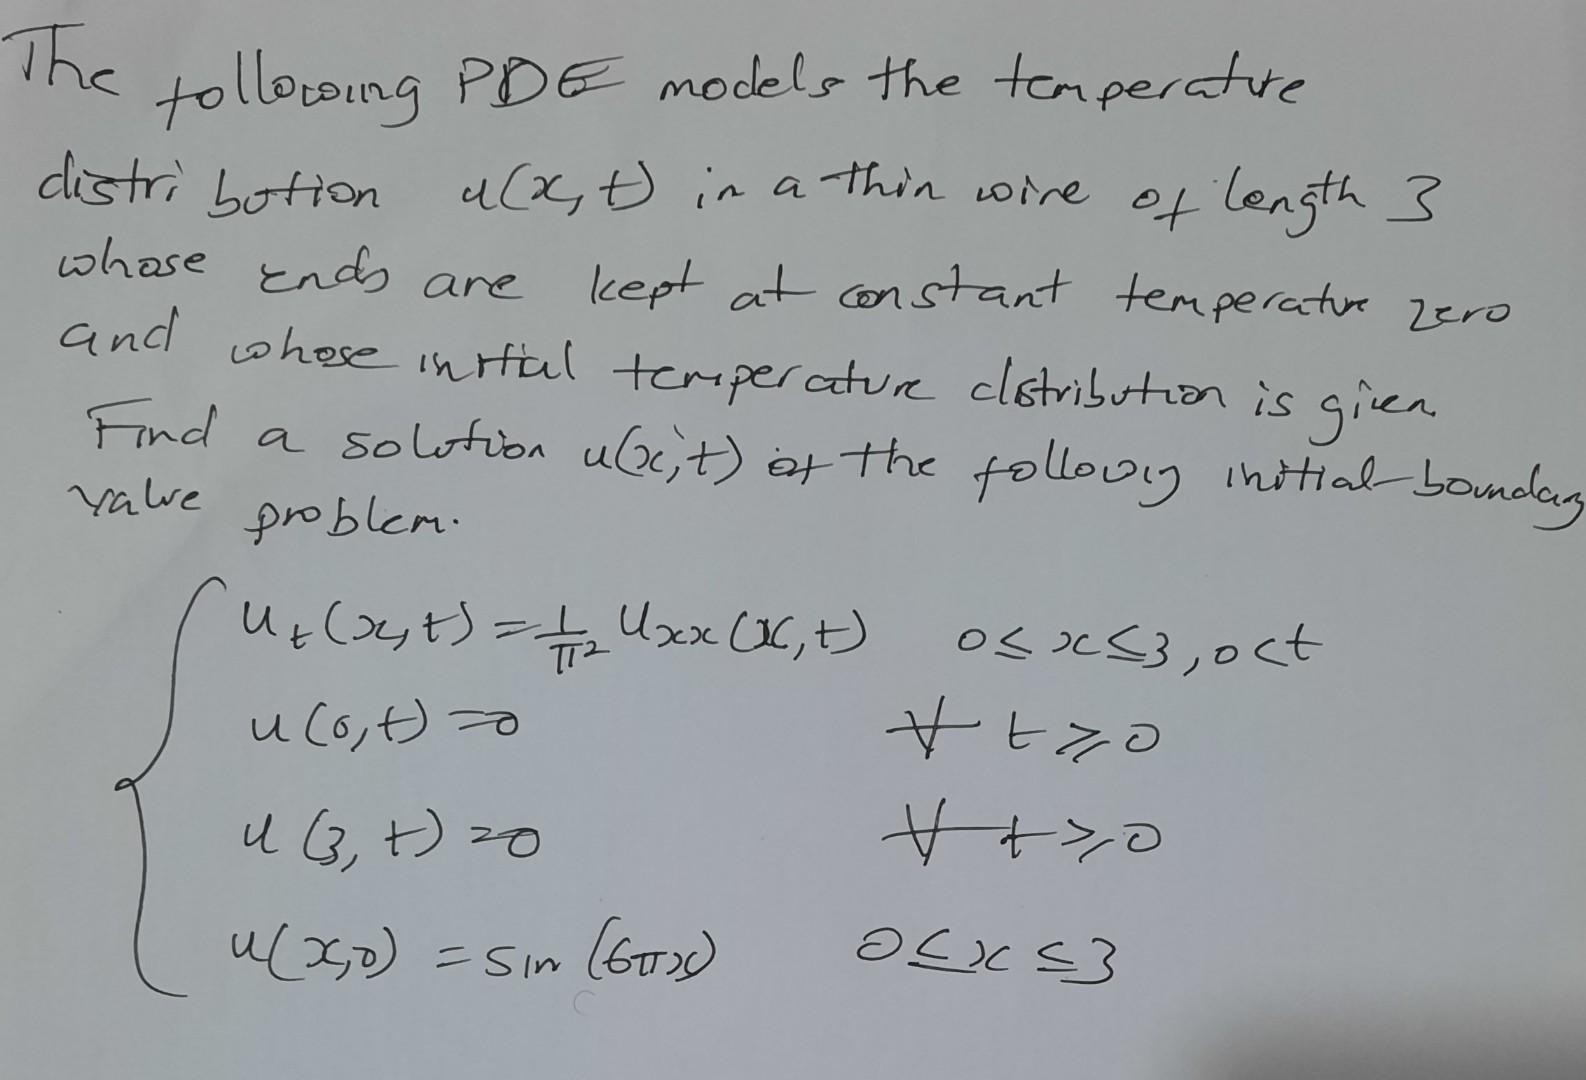 The following PDE models the temperature
distribution u(x,t) in a thin wire of length 3
whose ends are kept at constant temperature zero
and whose initial temperature distribution is given.
Find a solution u(x,t) of the following initial-boundary
value problem.
u_t(x,t) = 1/π² u_xx(x,t) 0≤x≤3, 0<t
u(0,t)=0 ∀ t≥0
u(3,t)=0 ∀ t≥0
u(x,0) = sin(6πx) 0≤x≤3